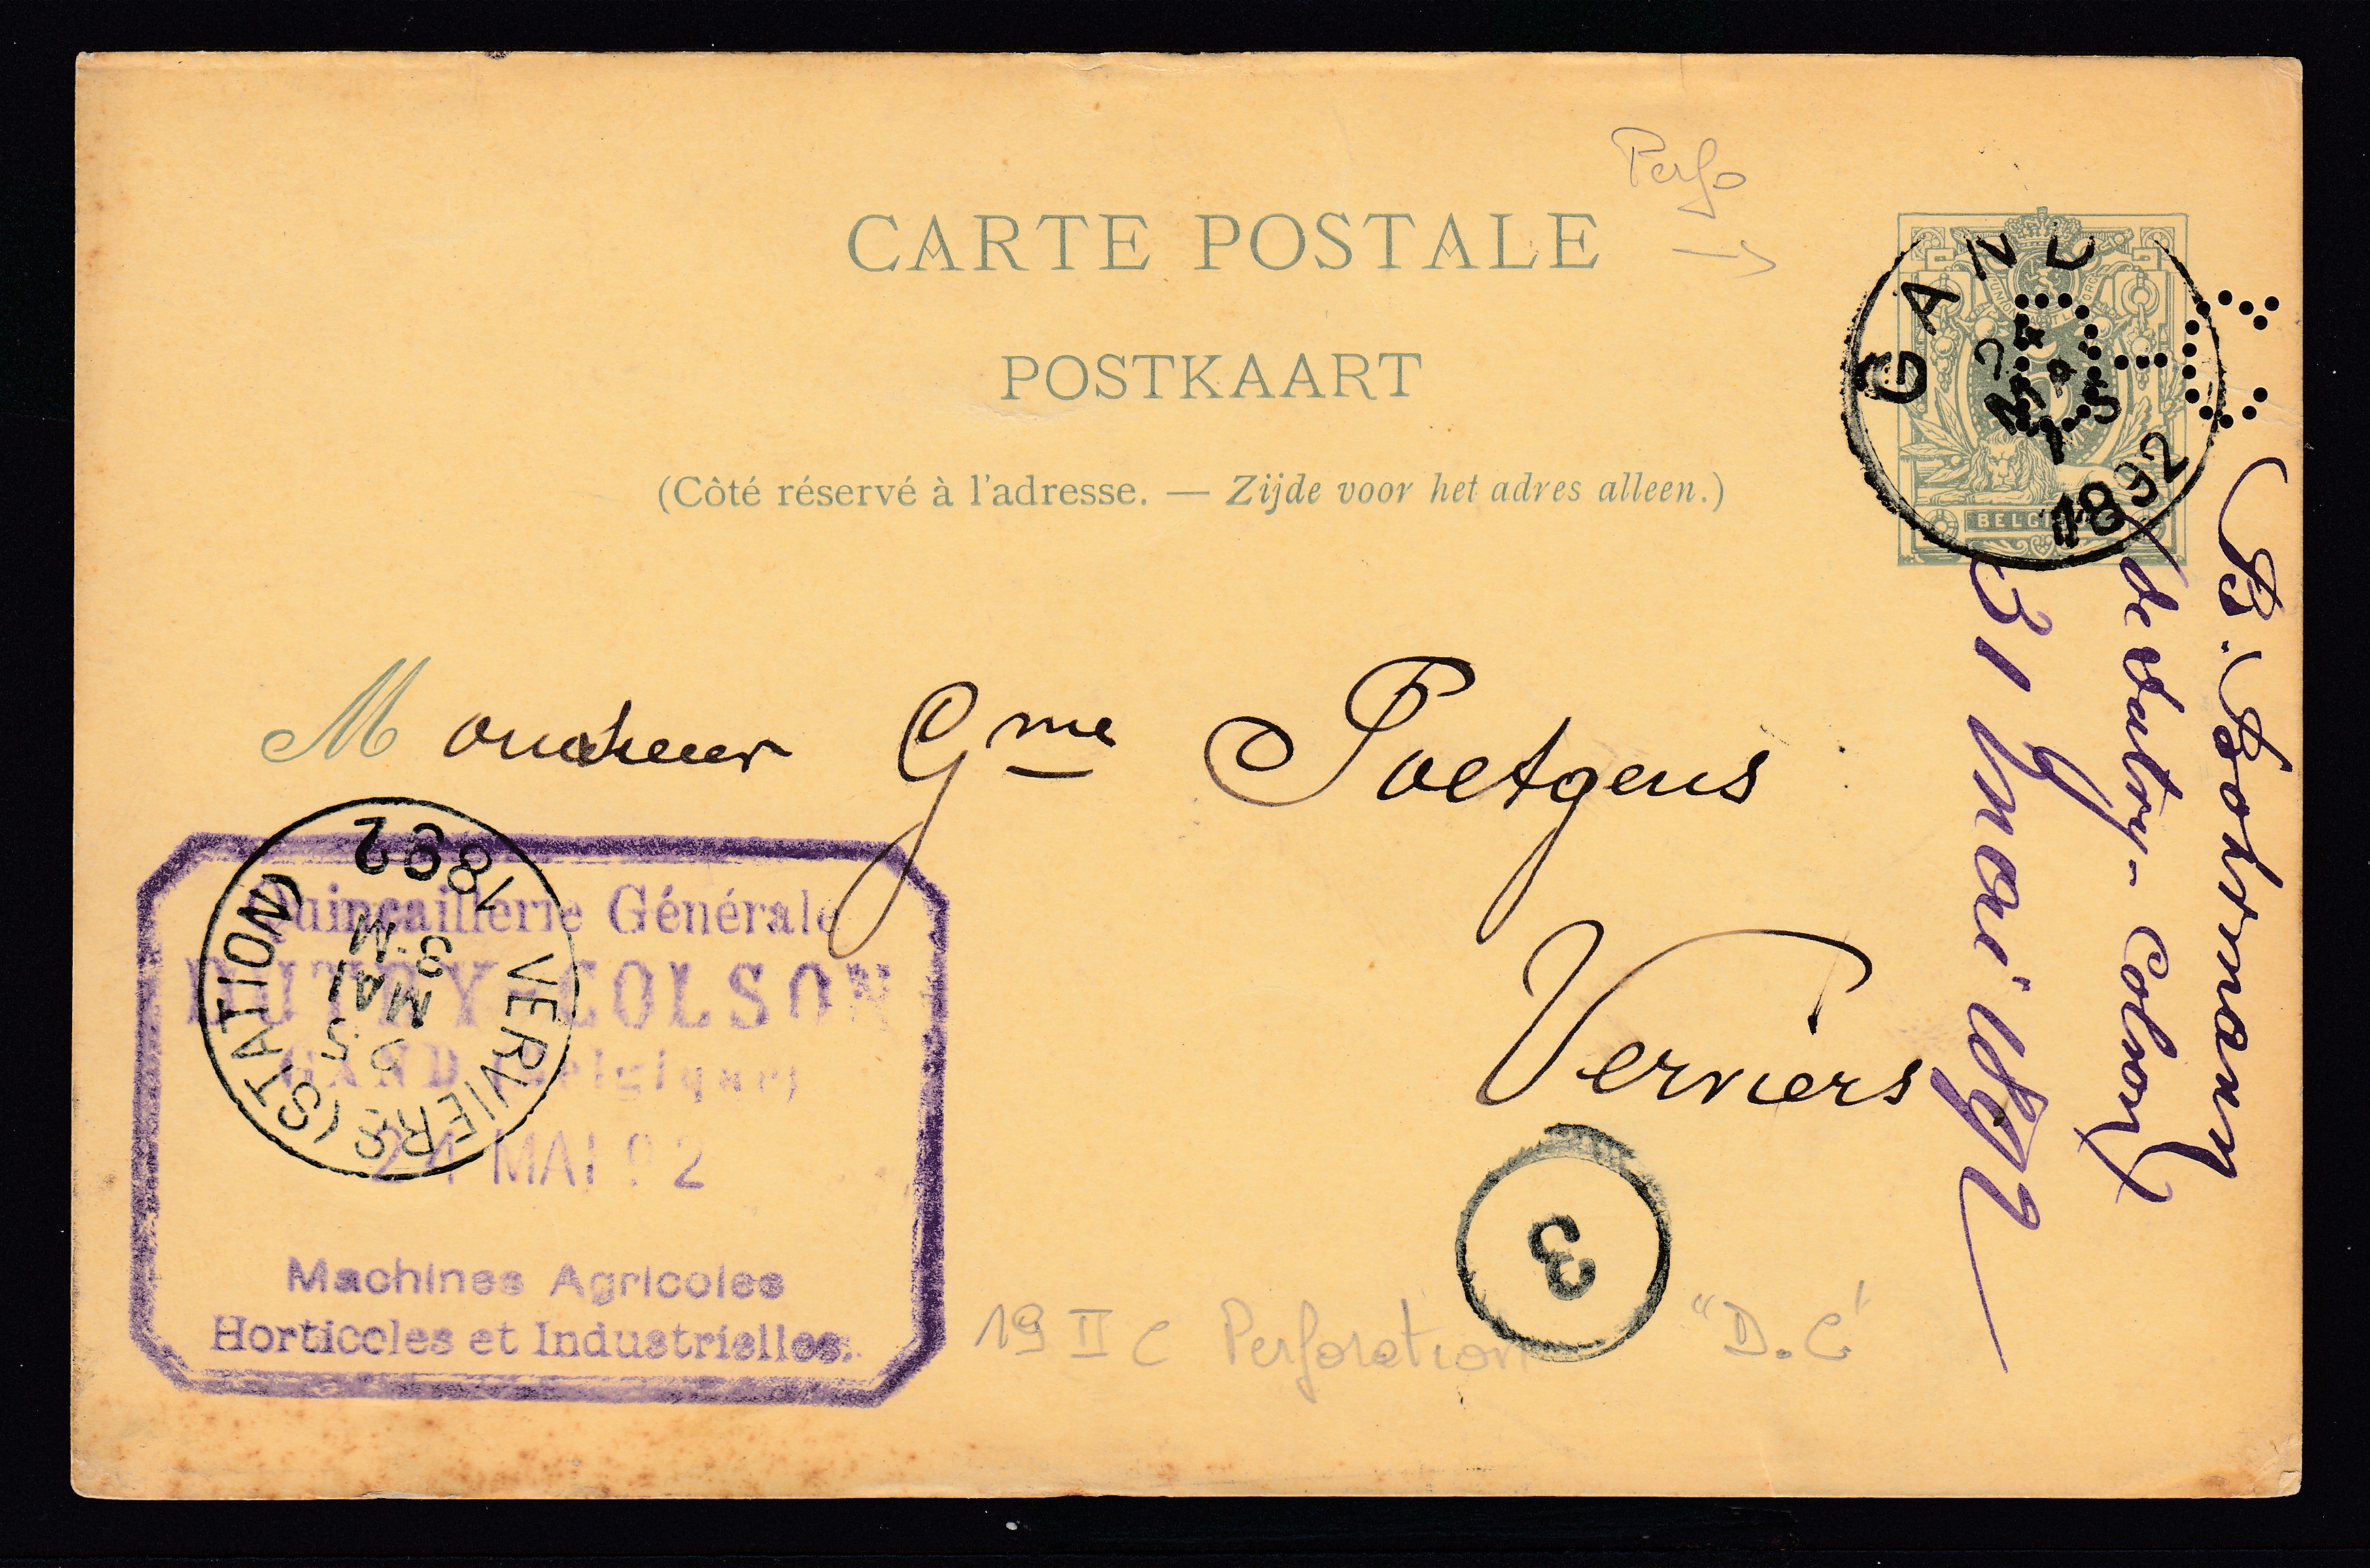 Perfo
CARTE POSTALE
POSTKAART
(Côté réservé à l'adresse. — Zijde voor het adres alleen.)
GAND
1892
D.C
Monsieur Gme Poetgens
Verviers
VERVIERS (STATION)
5 MAI
9-M
1892
Quincaillerie Générale
DUTRY-COLSON
GAND (Belgique)
24 MAI 92
Machines Agricoles
Horticoles et Industrielles.
3
19 II C Perforation "D.C"
de Dutry-Colson
31 Mai 1892